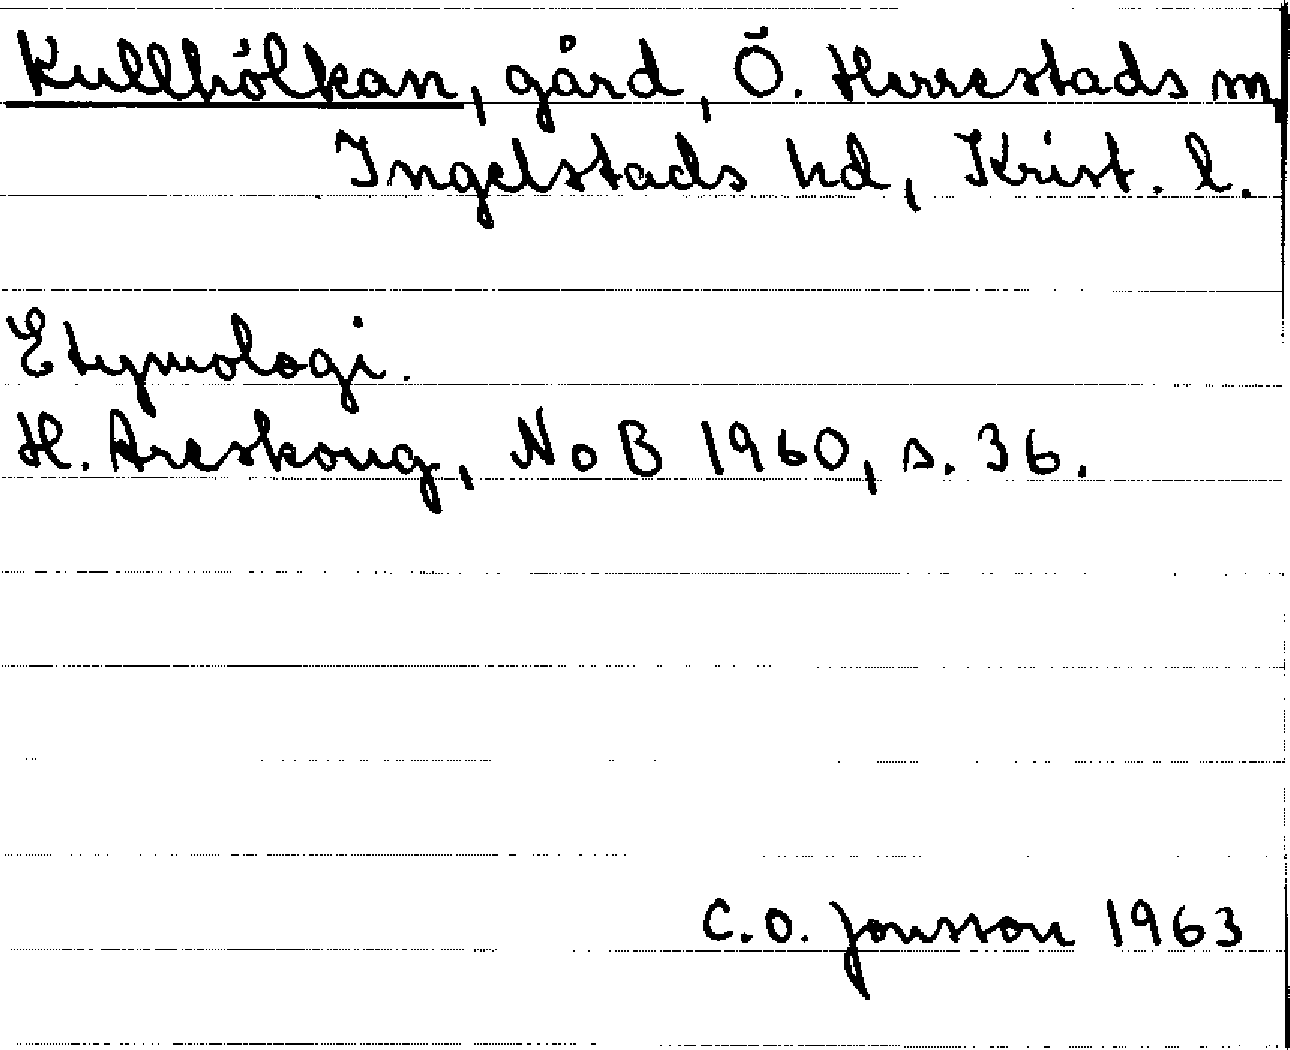 Kullhölkan, gård, Ö. Herrestads sn,
Ingelstads hd, Krist. l.
Etymologi.
H. Areskoug, NoB 1960, s. 36.
C.O. Jonsson 1963